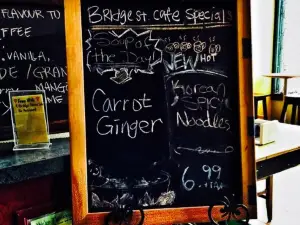 FLAVOUR TO
FFEE
VANILA,
DE / GRAN
MANG
ME
Bridge st. cafe Specials
Soup of
the Day
Carrot
Ginger
NEW HOT
Korean
Spicy
Noodles
6.99